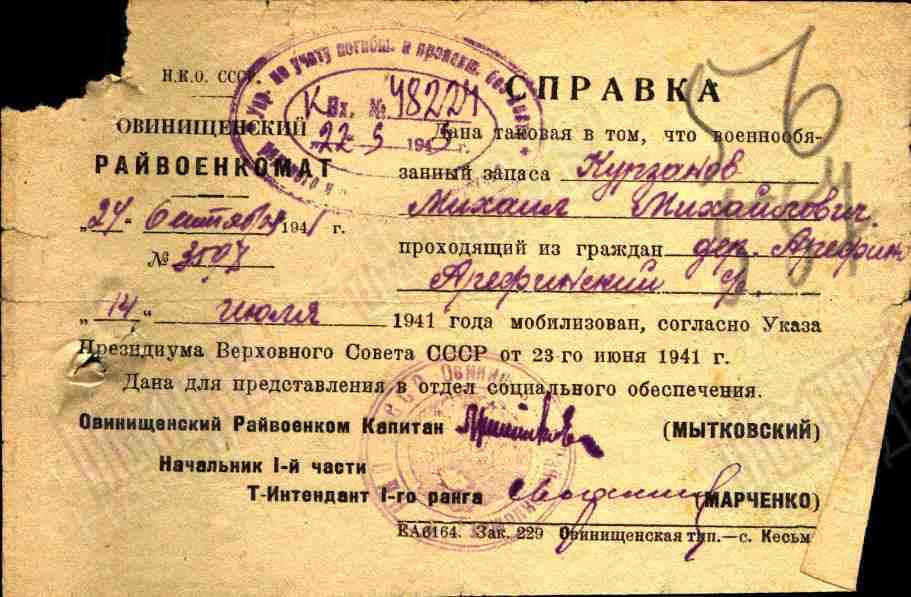 Н.К.О. СССР.
ОВИНИЩЕНСКИЙ
РАЙВОЕНКОМАТ
"24" сентября 1941 г.
№ 3507
Упр. по учету погибш. и пропавш. без
Вх. № 48224
"22" 5 194 г.
СПРАВКА
56
Дана таковая в том, что военнообя-
занный запаса Курзанов
Михаил Михайлович
проходящий из граждан дер. Арефин
Арефинский с/с.
"14" июля 1941 года мобилизован, согласно Указа
Президиума Верховного Совета СССР от 23-го июня 1941 г.
Дана для представления в отдел социального обеспечения.
Овинищенский Райвоенком Капитан (МЫТКОВСКИЙ)
Начальник I-й части
Т-Интендант I-го ранга (МАРЧЕНКО)
ЕА6164. Зак. 229 Овинищенская тип.—с. Кесьм